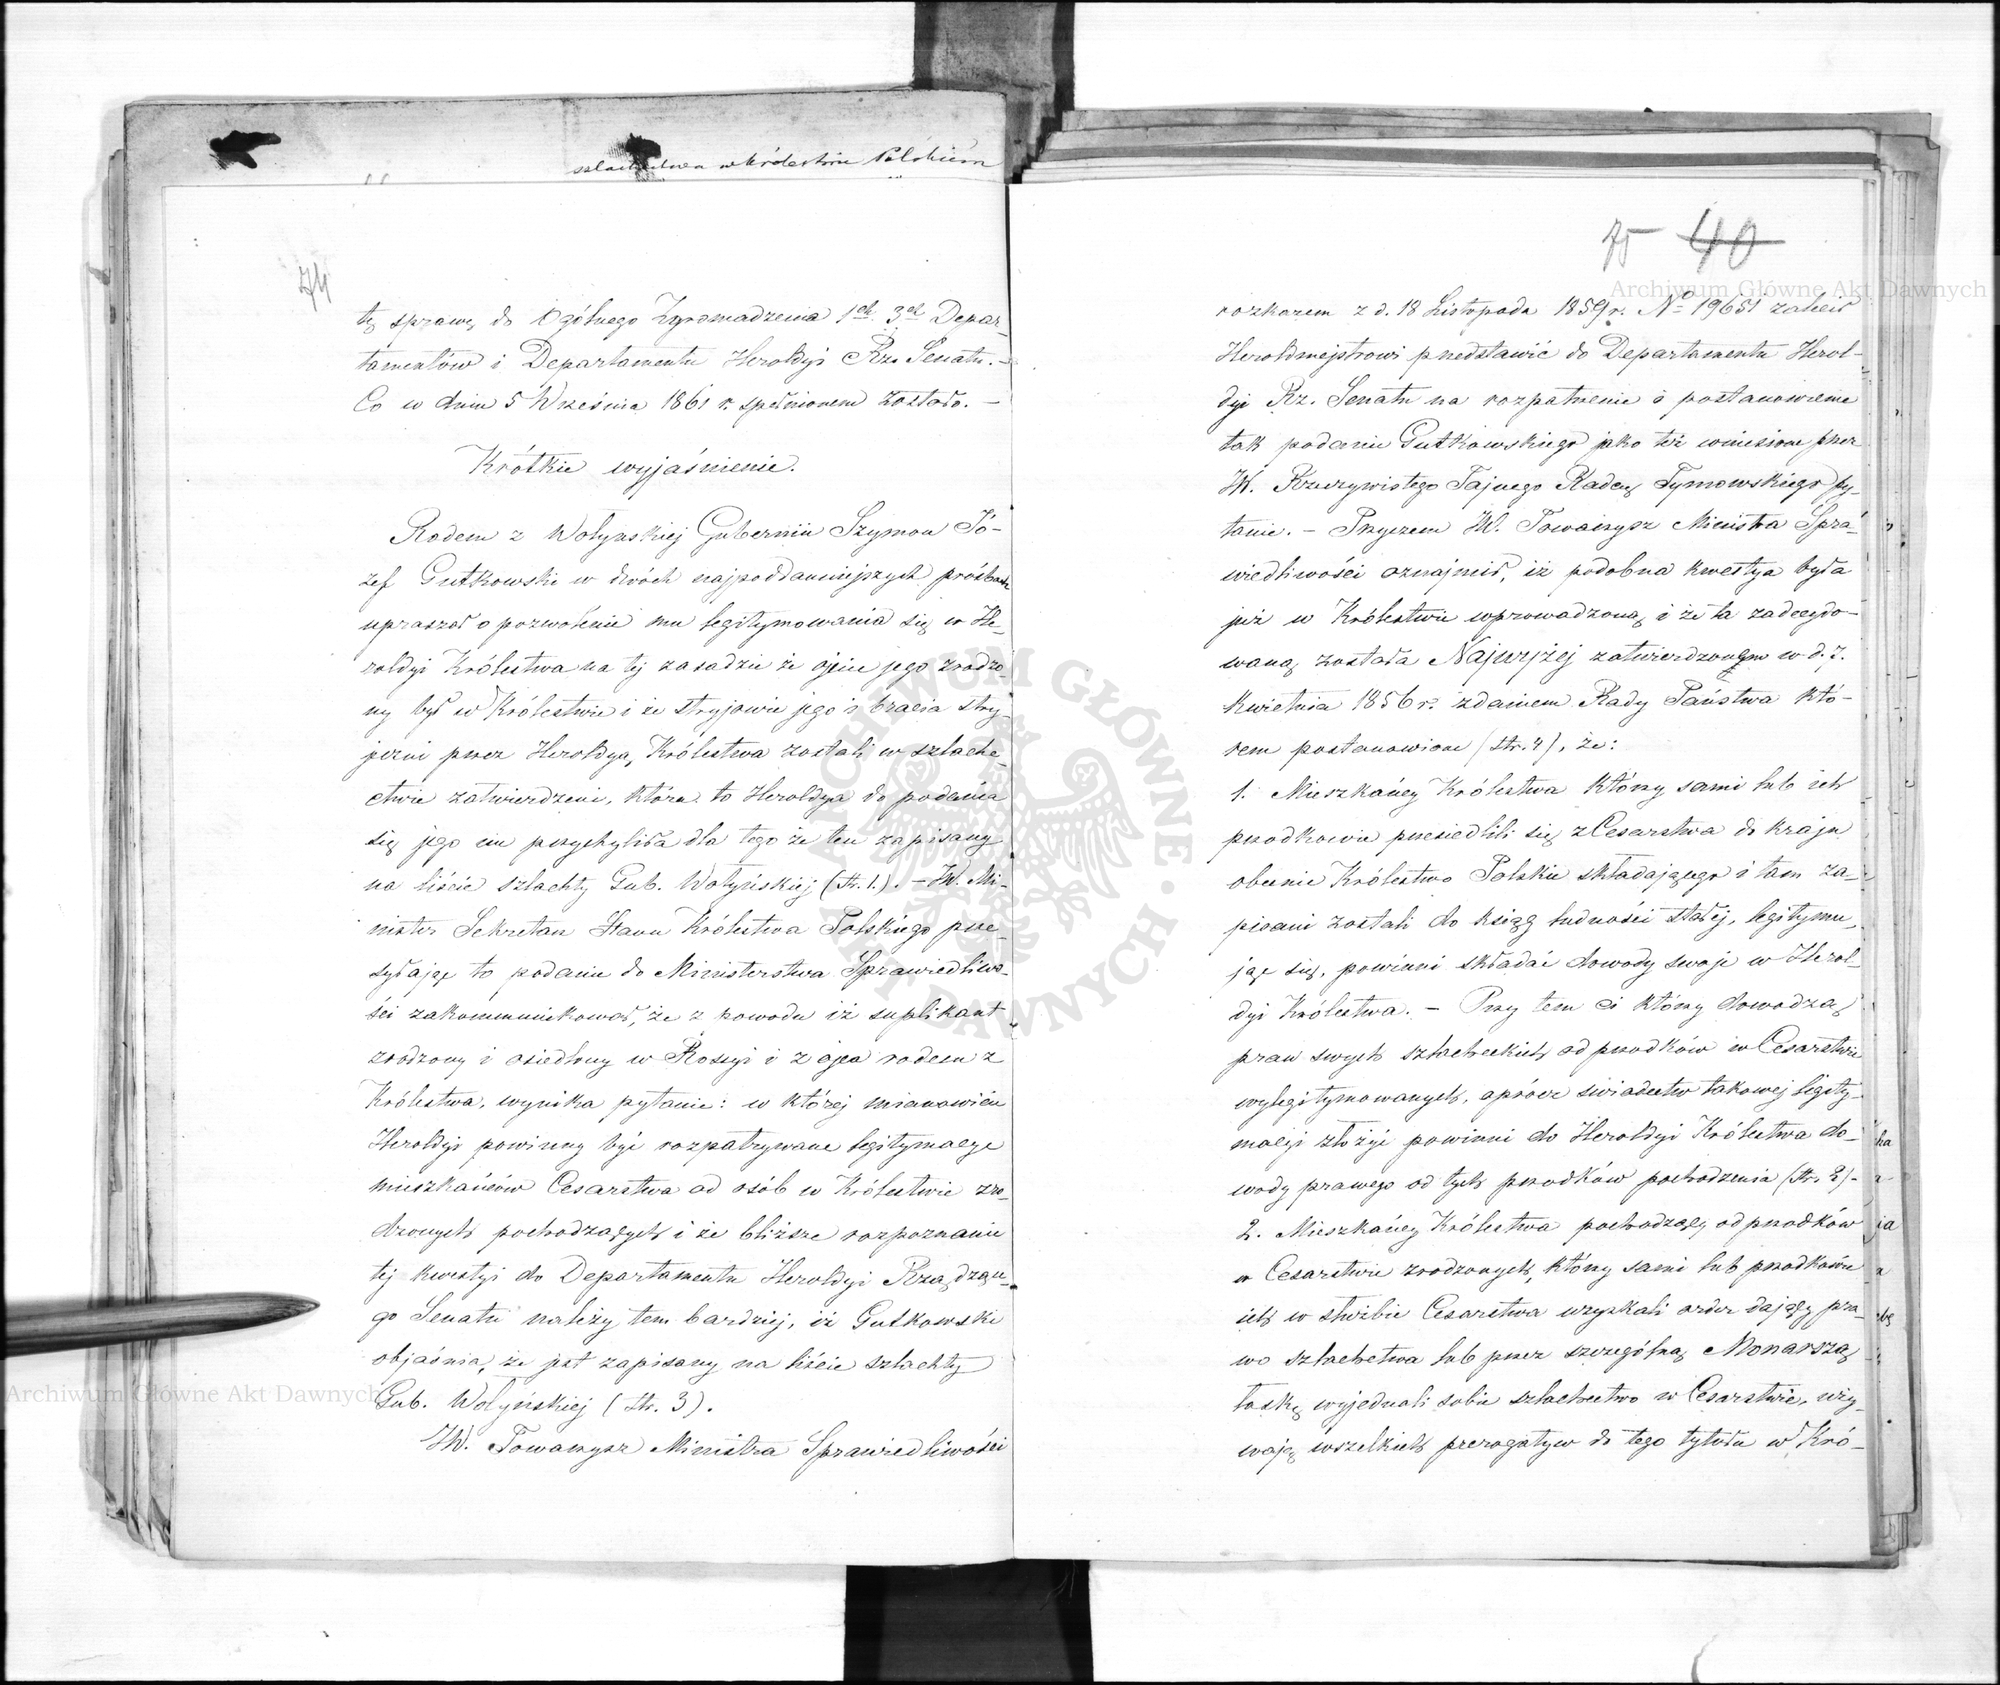 szlachectwa w Królestwie Polskiem
74
tę sprawę do Ogólnego Zgromadzenia 1ch 3ch Depar-
tamentów i Departamentu Heroldyi Rz. Senatu. -
Co w dniu 5 Września 1861 r. spełnionem zostało. -
Krótkie wyjaśnienie.
Rodem z Wołyńskiej Gubernii Szymon Jó-
zef Gutkowski w dwóch najpoddanniejszych prośbach
upraszał o pozwolenie mu legitymowania się w He-
roldyi Królestwa na tej zasadzie że ojciec jego zrodzo-
ny był w Królestwie i że stryjowie jego i bracia stry-
jeczni przez Heroldyą Królestwa zostali w szlache-
ctwie zatwierdzeni, która to Heroldya do podania
się jego nie przychyliła dla tego że ten zapisany
na liście szlachty Gub. Wołyńskiej (str. 1.). - JW. Mi-
nister Sekretarz Stanu Królestwa Polskiego prze-
syłając to podanie do Ministerstwa Sprawiedliwo-
ści zakommunikował, że z powodu iż suplikant
zrodzony i osiedlony w Rossyi i z ojca rodem z
Królestwa, wynika pytanie: w której mianowicie
Heroldyi powinny być rozpatrywane legitymacye
mieszkańców Cesarstwa od osób w Królestwie zro-
dzonych pochodzących i że bliższe rozpoznanie
tej kwestyi do Departamentu Heroldyi Rządzące-
go Senatu należy tem bardziej, iż Gutkowski
objaśnia, że jest zapisany na liście szlachty
Gub. Wołyńskiej (str. 3).
JW. Towarzysz Ministra Sprawiedliwości
75 40
rozkazem z d. 18 Listopada 1859 r. No 19651 zalecił
Heroldmejstrowi przedstawić do Departamentu Herol-
dyi Rz. Senatu na rozpatrzenie i postanowienie
tak podanie Gutkowskiego jako też wniesione przez
JW. Rzeczywistego Tajnego Radcę Tymowskiego py-
tanie. - Przyczem JW. Towarzysz Ministra Spra-
wiedliwości oznajmił, iż podobna kwestya była
już w Królestwie wprowadzoną i że ta zadecydo-
waną została Najwyżej zatwierdzonem w d. 7.
Kwietnia 1856 r. zdaniem Rady Państwa któ-
rem postanowiono (str. 4), że:
1. Mieszkańcy Królestwa którzy sami lub ich
przodkowie przesiedlili się z Cesarstwa do kraju
obecnie Królestwo Polskie składającego i tam za-
pisani zostali do ksiąg ludności stałej, legitymu-
jąc się, powinni składać dowody swoje w Herol-
dyi Królestwa. - Przy tem ci którzy dowodzą
praw swych szlacheckich od przodków w Cesarstwie
wylegitymowanych, oprócz świadectw takowej legity-
macyi złożyć powinni do Heroldyi Królestwa do-
wody prawego od tych przodków pochodzenia (str. 2) -
2. Mieszkańcy Królestwa pochodzący od przodków
w Cesarstwie zrodzonych, którzy sami lub przodkowie
ich w służbie Cesarstwa uzyskali order dający pra-
wo szlachectwa lub przez szczególną Monarszą
łaskę wyjednali sobie szlachectwo w Cesarstwie, uży-
wają wszelkich prerogatyw do tego tytułu w Kró-
Archiwum Główne Akt Dawnych
Archiwum Główne Akt Dawnych
ARCHIWUM GŁÓWNE AKT DAWNYCH